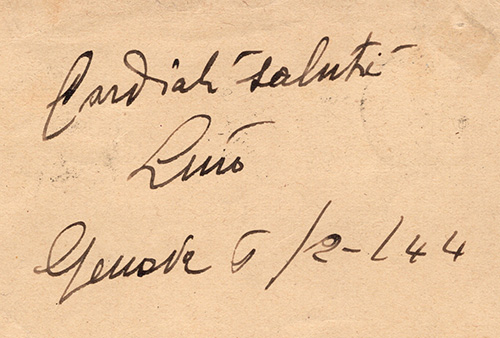 Cordiali saluti
Lino
Genova 6/2-/44